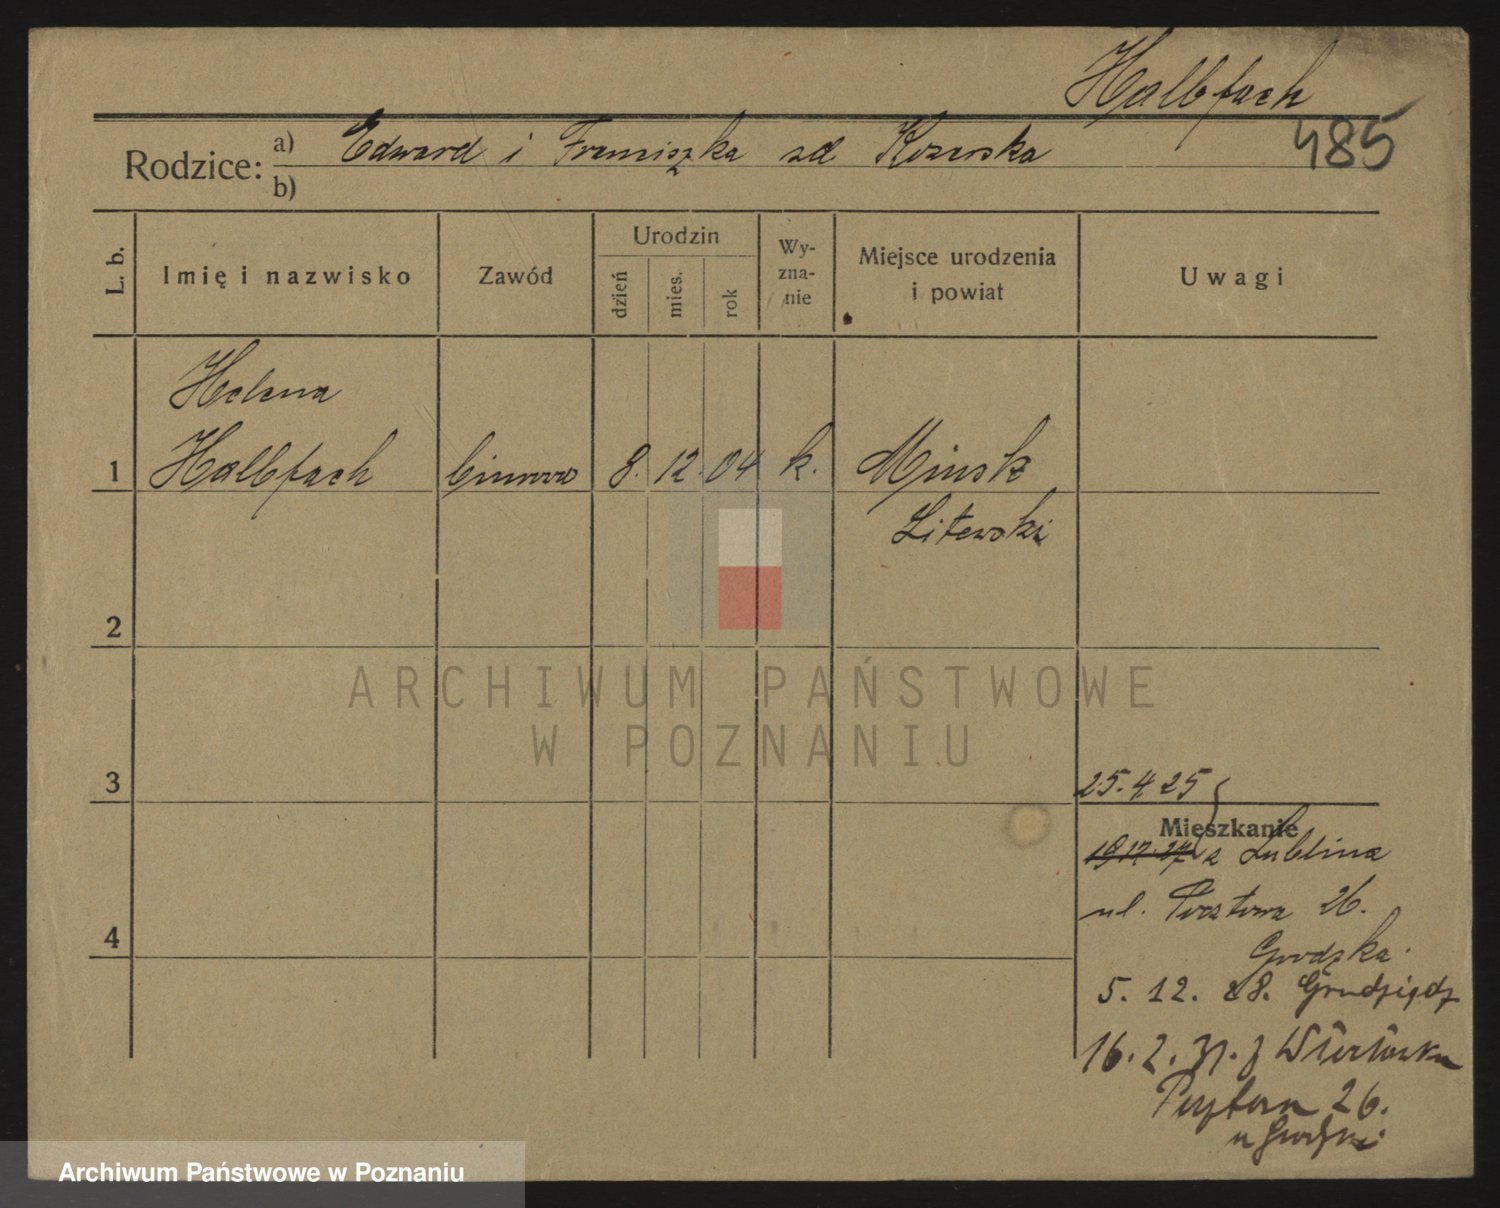 Halbfach
485
Rodzice: a) Edward i Franciszka zd Kozerska
b)
L. b.
Imię i nazwisko
Zawód
Urodzin
dzień
mies.
rok
Wy-
zna-
nie
Miejsce urodzenia
i powiat
Uwagi
Helena
1 Halbfach 8. 12. 04 k. Mińsk
Litewski
2
ARCHIWUM PAŃSTWOWE
W POZNANIU
3
25. 4 25
Mieszkanie
z Lublina
ul. Pocztowa 26.
Grodzka.
4
5. 12. 28. Grudziądz
16. 2. 31. z
26.
Archiwum Państwowe w Poznaniu